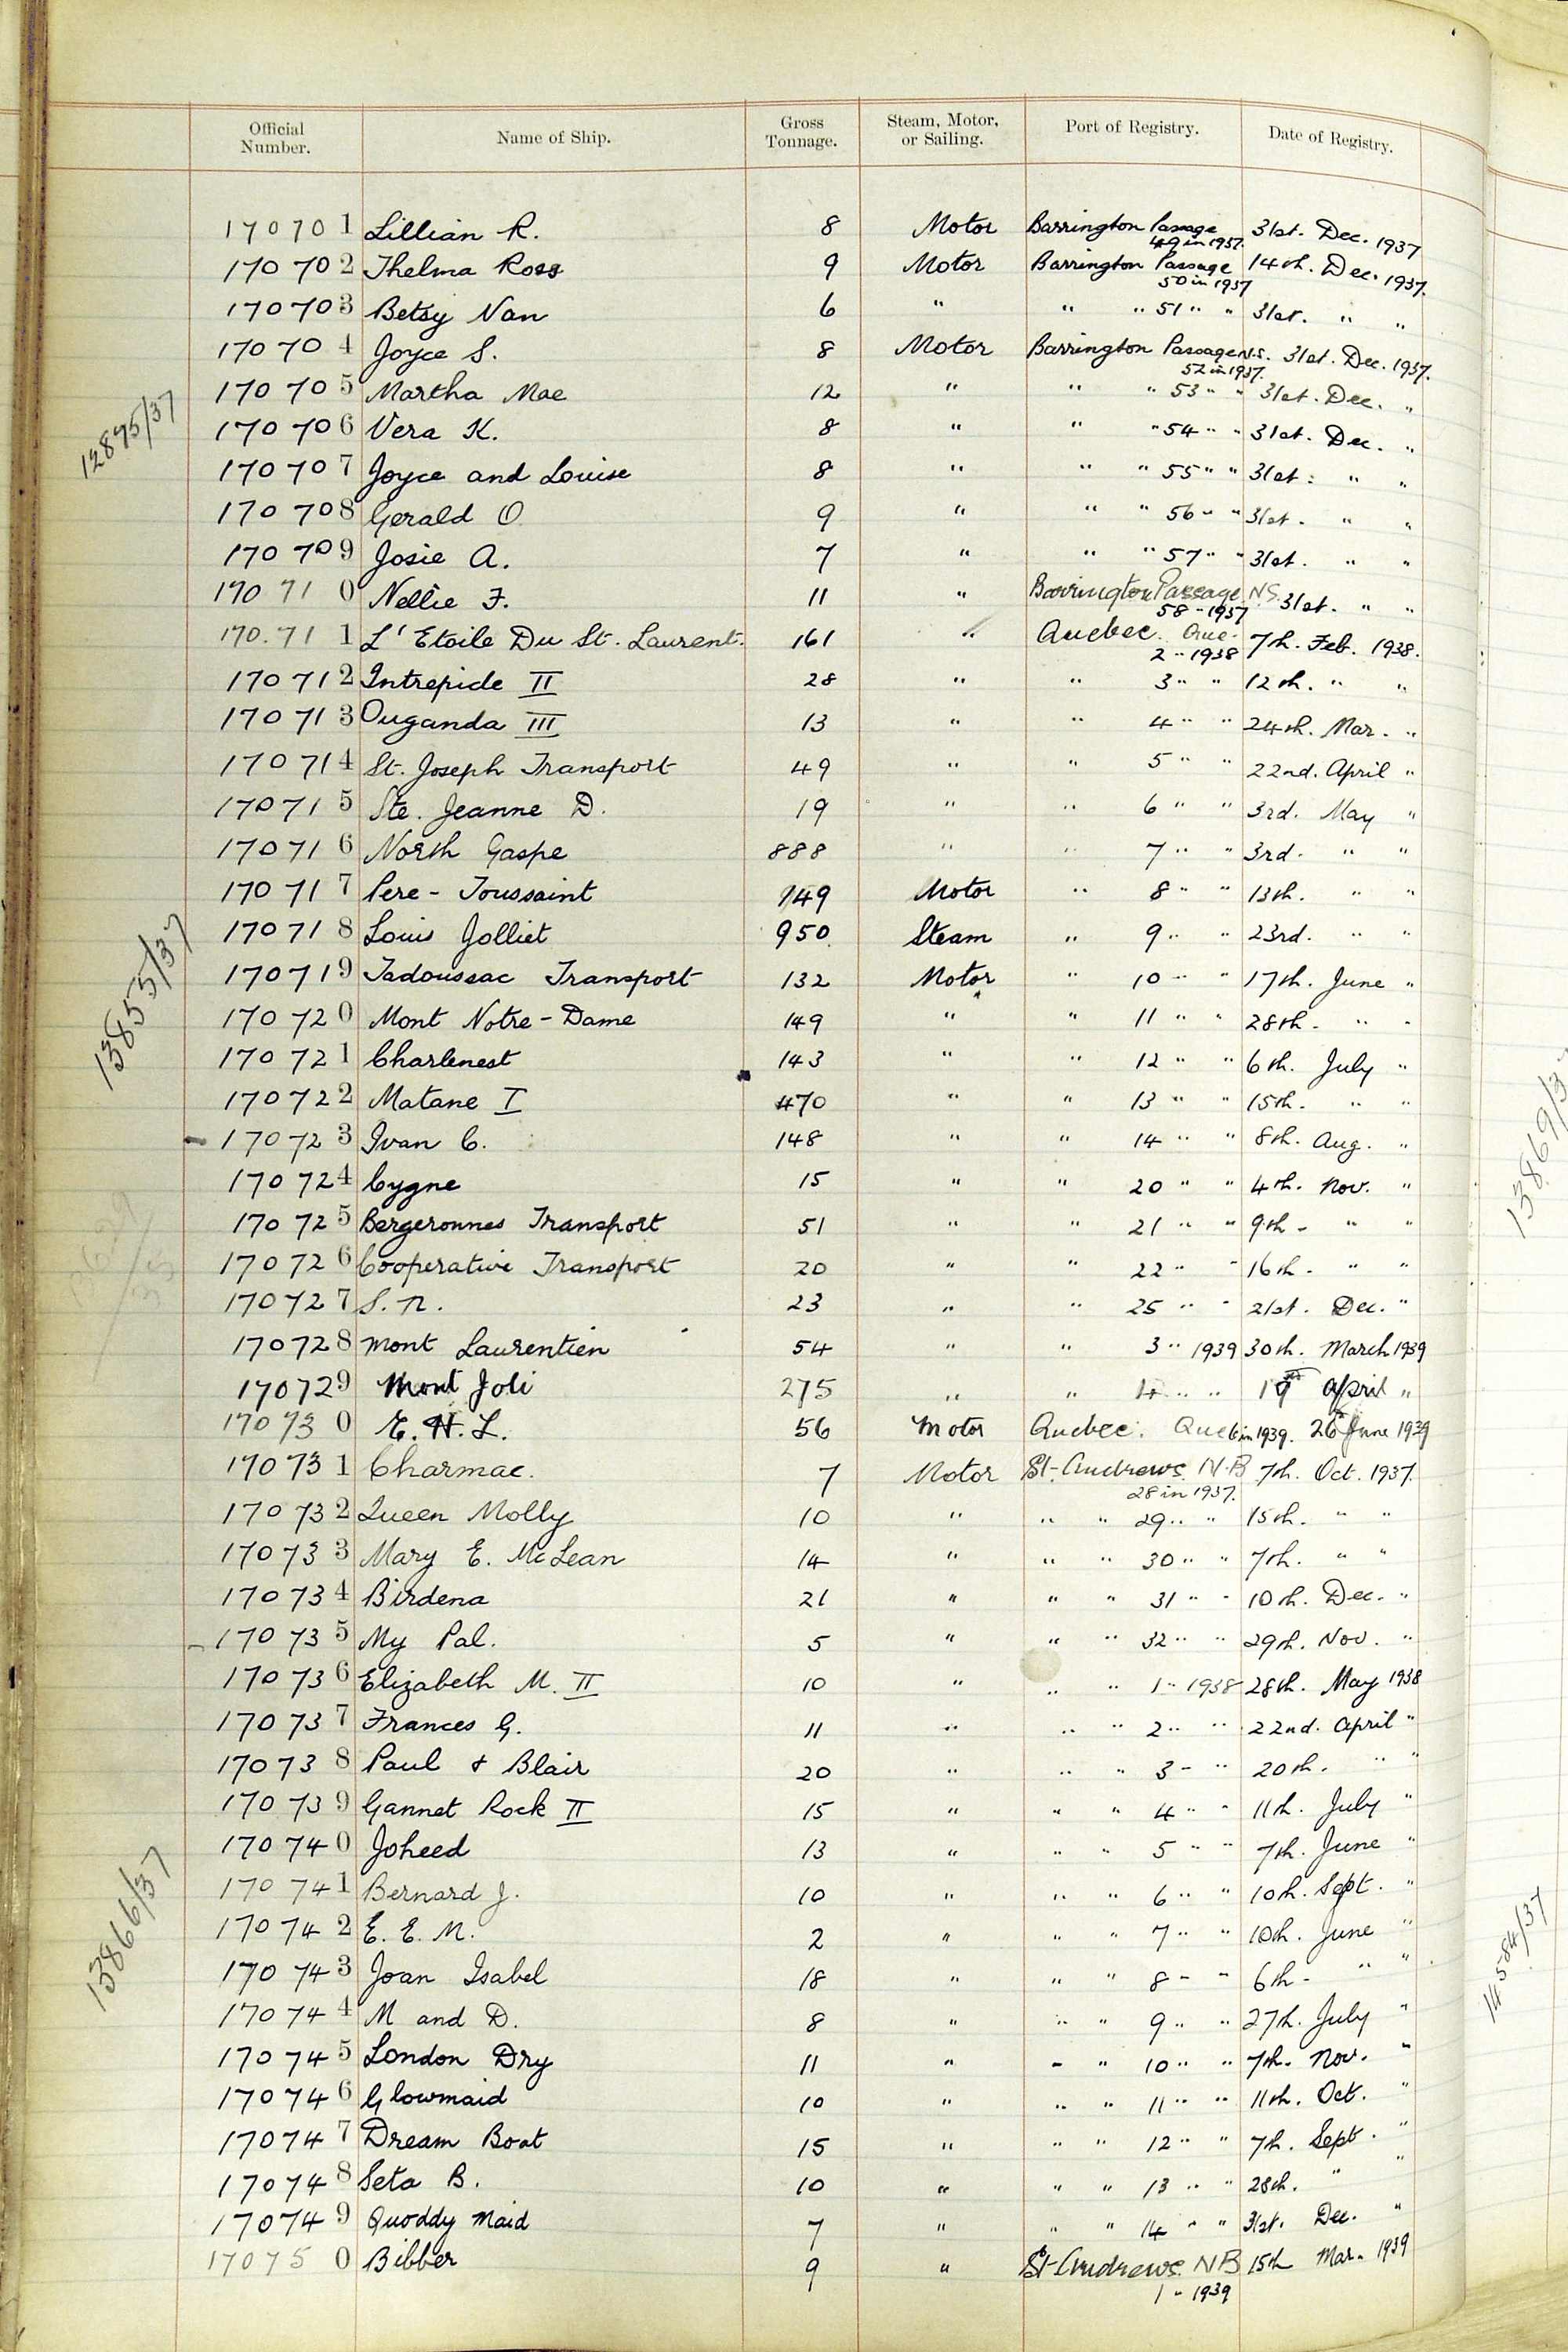 Official Number. Name of Ship. Gross Tonnage. Steam, Motor, or Sailing. Port of Registry. Date of Registry.
170701 Lillian R. 8 Motor Barrington Passage 31st. Dec. 1937
49 in 1937.
170702 Thelma Ross 9 Motor Barrington Passage 14th. Dec. 1937.
50 in 1937
170703 Betsy Nan 6 " " " 51 " " 31st. " "
170704 Joyce S. 8 Motor Barrington Passage N.S. 31st. Dec. 1937.
52 in 1937.
170705 Martha Mae 12 " " " 53 " " 31st. Dec. "
12875/37
170706 Vera K. 8 " " " 54 " " 31st. Dec. "
170707 Joyce and Louise 8 " " " 55 " " 31st. " "
170708 Gerald O 9 " " " 56 " " 31st. " "
170709 Josie A. 7 " " " 57 " " 31st. " "
170710 Nellie F. 11 " Barrington Passage N.S. 31st. " "
58 " 1937
170711 L'Etoile Du St. Laurent. 161 " Quebec. Que. 7th. Feb. 1938.
2 " 1938
170712 Intrepide II 28 " " 3 " " 12th. " "
170713 Ouganda III 13 " " 4 " " 24th. Mar. "
170714 St. Joseph Transport 49 " " 5 " " 22nd. April "
170715 Ste. Jeanne D. 19 " " 6 " " 3rd. May "
170716 North Gaspe 888 " " 7 " " 3rd. " "
170717 Pere - Toussaint 149 Motor " 8 " " 13th. " "
170718 Louis Jolliet 950 Steam " 9 " " 23rd. " "
170719 Tadoussac Transport 132 Motor " 10 " " 17th. June "
13855/37
170720 Mont Notre-Dame 149 " " 11 " " 28th. " "
170721 Charlenest 143 " " 12 " " 6th. July "
170722 Matane I 470 " " 13 " " 15th. " "
170723 Ivan C. 148 " " 14 " " 8th. Aug. "
170724 Cygne 15 " " 20 " " 4th. Nov. "
170725 Bergeronnes Transport 51 " " 21 " " 9th. " "
170726 Cooperative Transport 20 " " 22 " " 16th. " "
170727 S. N. 23 " " 25 " " 21st. Dec. "
170728 Mont Laurentien 54 " " 3 " 1939 30th. March 1939
170729 Mont Joli 275 " " 4 " " April "
170730 E. H. L. 56 Motor Quebec. Que 6 in 1939. 26 June 1939
170731 Charmac. 7 Motor St. Andrews. N.B 7th. Oct. 1937.
28 in 1937.
170732 Queen Molly 10 " " " 29 " " 15th. " "
170733 Mary E. McLean 14 " " " 30 " " 7th. " "
170734 Birdena 21 " " " 31 " " 10th. Dec. "
170735 My Pal. 5 " " " 32 " " 29th. Nov. "
170736 Elizabeth M. II 10 " " " 1 " 1938 28th. May 1938
170737 Frances G. 11 " " " 2 " " 22nd. April "
170738 Paul & Blair 20 " " " 3 " " 20th. " "
170739 Gannet Rock II 15 " " " 4 " " 11th. July "
170740 Joheed 13 " " " 5 " " 7th. June "
170741 Bernard J. 10 " " " 6 " " 10th. Sept. "
13866/37
170742 E. E. M. 2 " " " 7 " " 10th. June "
170743 Joan Isabel 18 " " " 8 " " 6th. " "
170744 M and D. 8 " " " 9 " " 27th. July "
170745 London Dry 11 " " " 10 " " 7th. Nov. "
170746 Glowmaid 10 " " " 11 " " 11th. Oct. "
170747 Dream Boat 15 " " " 12 " " 7th. Sept. "
170748 Seta B. 10 " " " 13 " " 28th. " "
170749 Quoddy Maid 7 " " " 14 " " 31st. Dec. "
170750 Bibber 9 " St. Andrews. N B 15th Mar. 1939
1 " 1939
14584/37